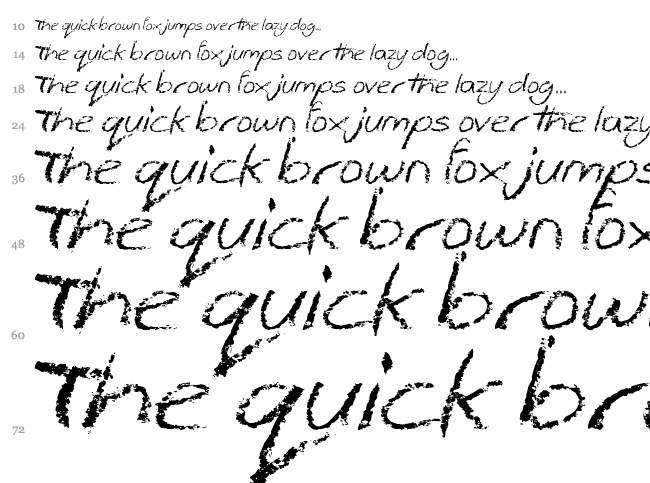 10 The quick brown fox jumps over the lazy dog...
14 The quick brown fox jumps over the lazy dog...
18 The quick brown fox jumps over the lazy dog...
24 The quick brown fox jumps over the lazy
36 The quick brown fox jumps
48 The quick brown fox
60 The quick brown
72 The quick br